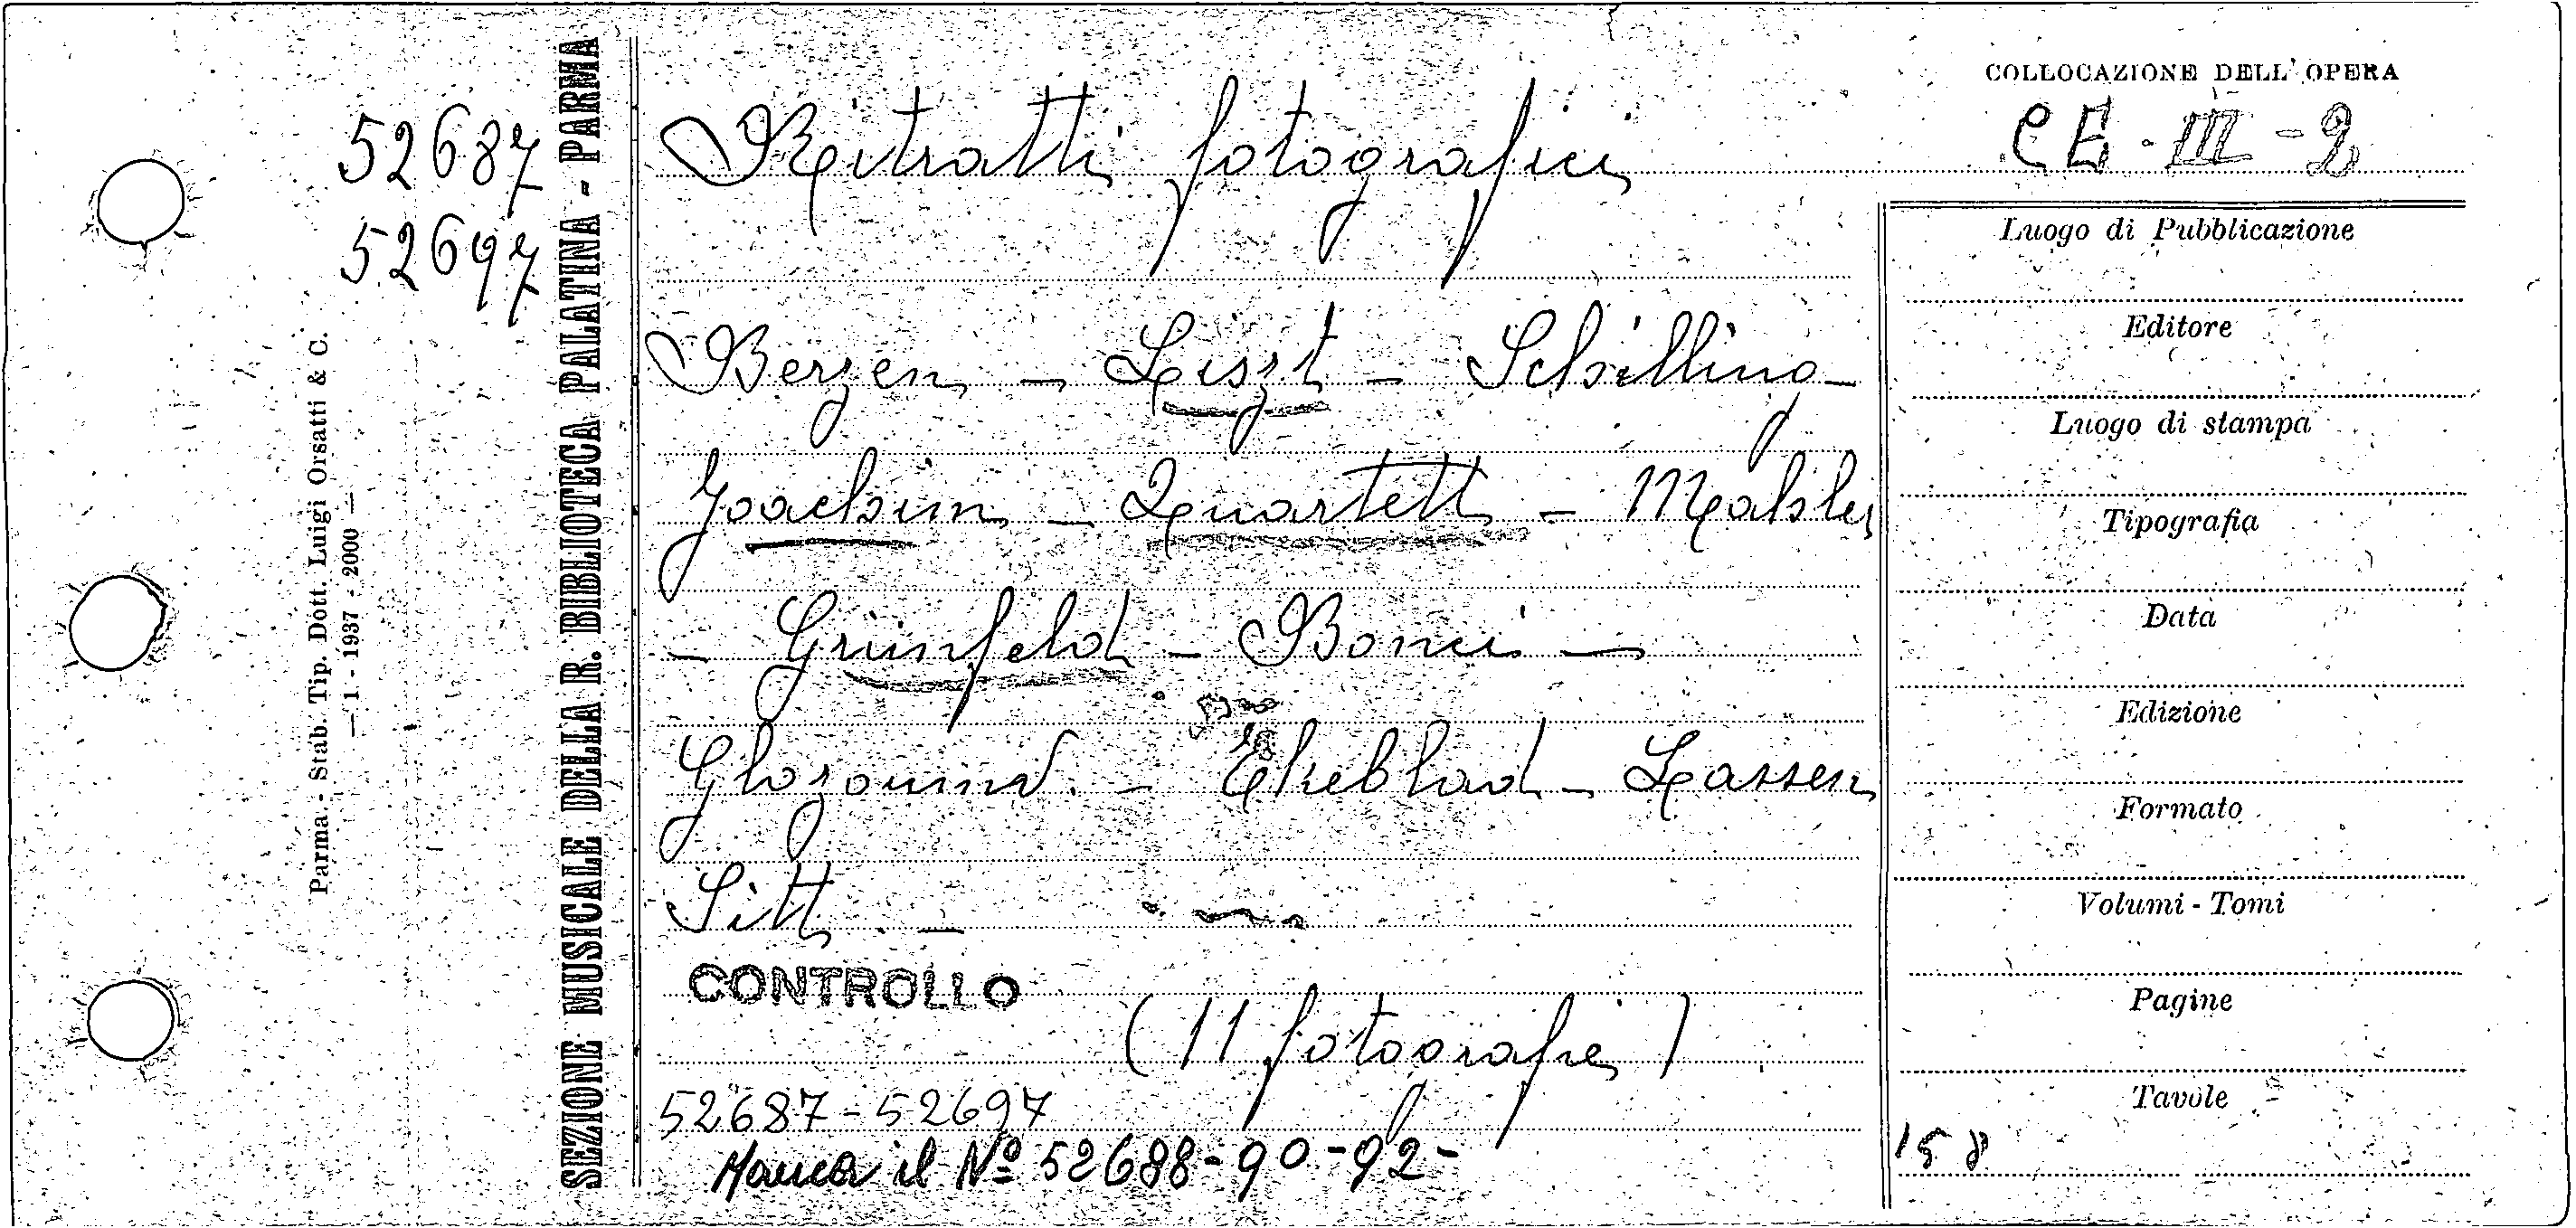 52687
52697
Parma - Stab. Tip. Dott. Luigi Orsatti & C.
— 1 - 1937 - 2000 —
SEZIONE MUSICALE DELLA R. BIBLIOTECA PALATINA - PARMA
Ritratti fotografici
Berzen - Liszt - Schilling -
Joachim - Quartett - Mahler
- Grünfeld - Bonci -
- Ekeblad - Lassen
Sitt. -
CONTROLLO
(11 fotografie)
52687-52697
Manca il Nº 52688-90-92-
COLLOCAZIONE DELL'OPERA
CE - III - 2
Luogo di Pubblicazione
Editore
Luogo di stampa
Tipografia
Data
Edizione
Formato
Volumi - Tomi
Pagine
Tavole
158